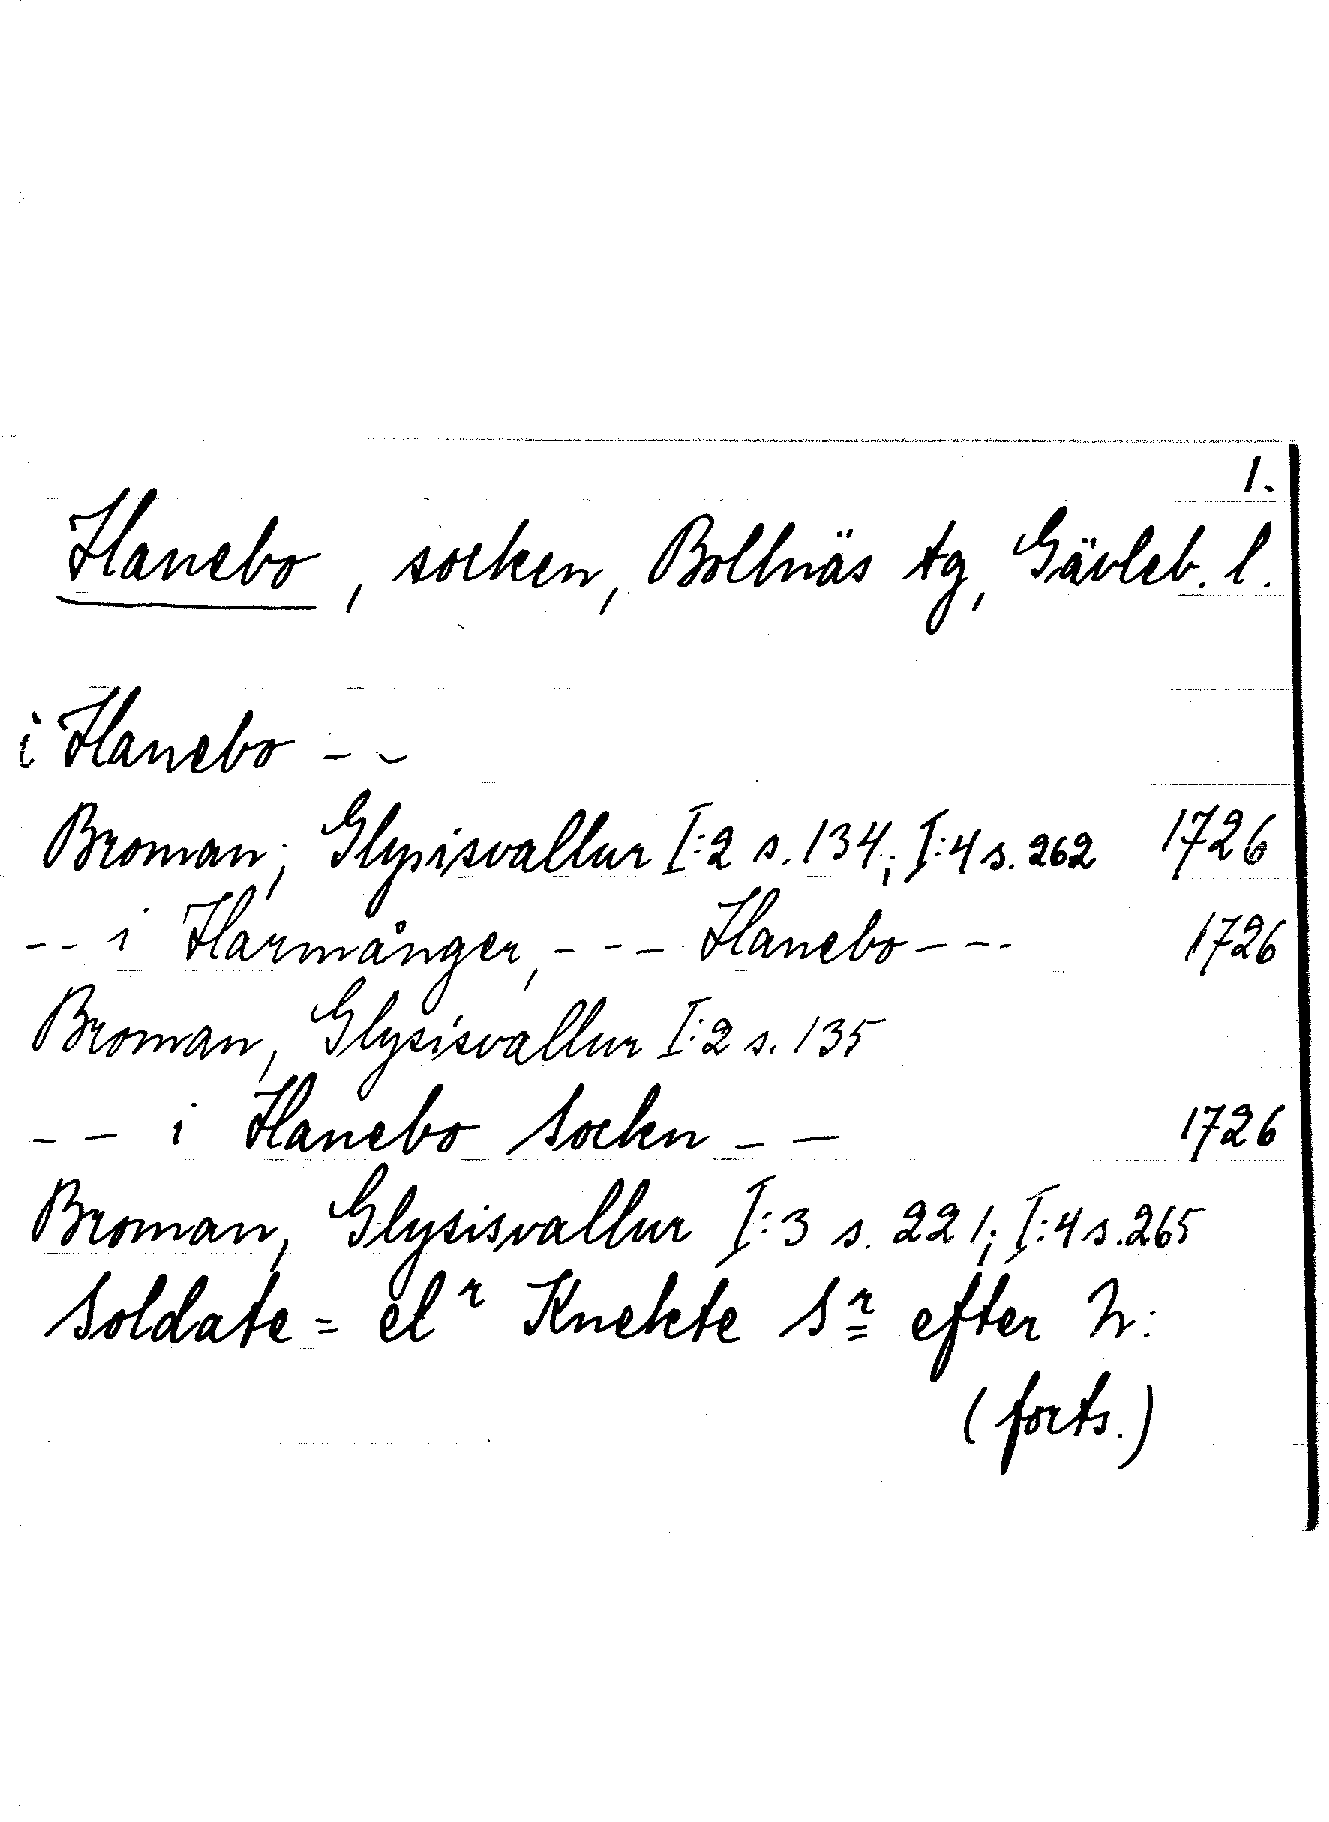 1.
Hanebo, socken, Bollnäs tg, Gävleb. l.
i Hanebo - -
Broman, Glysisvallur I:2 s. 134; I:4 s. 262 1726
- - i Harmånger, - - - Hanebo - - - 1726
Broman, Glysisvallur I:2 s. 135
- - i Hanebo Sockn - - 1726
Broman, Glysisvallur I:3 s. 221; I:4 s. 265
Soldate= el r Knekte S r efter
(forts.)